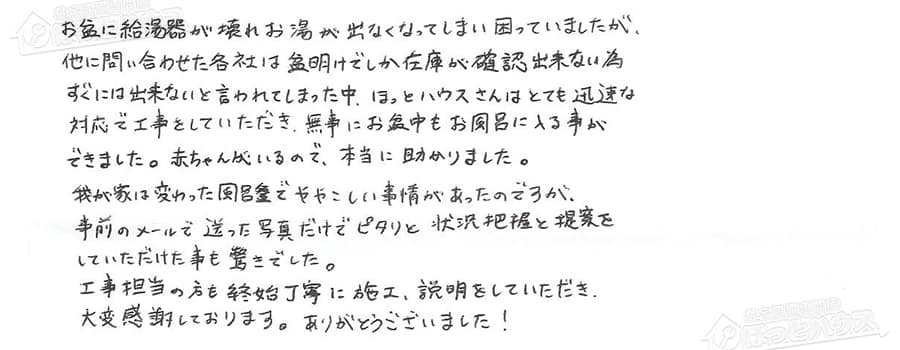 お盆に給湯器が壊れお湯が出なくなってしまい困っていましたが、
他に問い合わせた各社は盆明けでしか在庫が確認出来ない為
すぐには出来ないと言われてしまった中、ほっとハウスさんはとても迅速な
対応で工事をしていただき、無事にお盆中もお風呂に入る事が
できました。赤ちゃんがいるので、本当に助かりました。
我が家は変わった風呂釜でややこしい事情があったのですが、
事前のメールで送った写真だけでピタリと状況把握と提案を
していただけた事も驚きでした。
工事担当の方も終始丁寧に施工、説明をしていただき、
大変感謝しております。ありがとうございました！
ほっとハウス